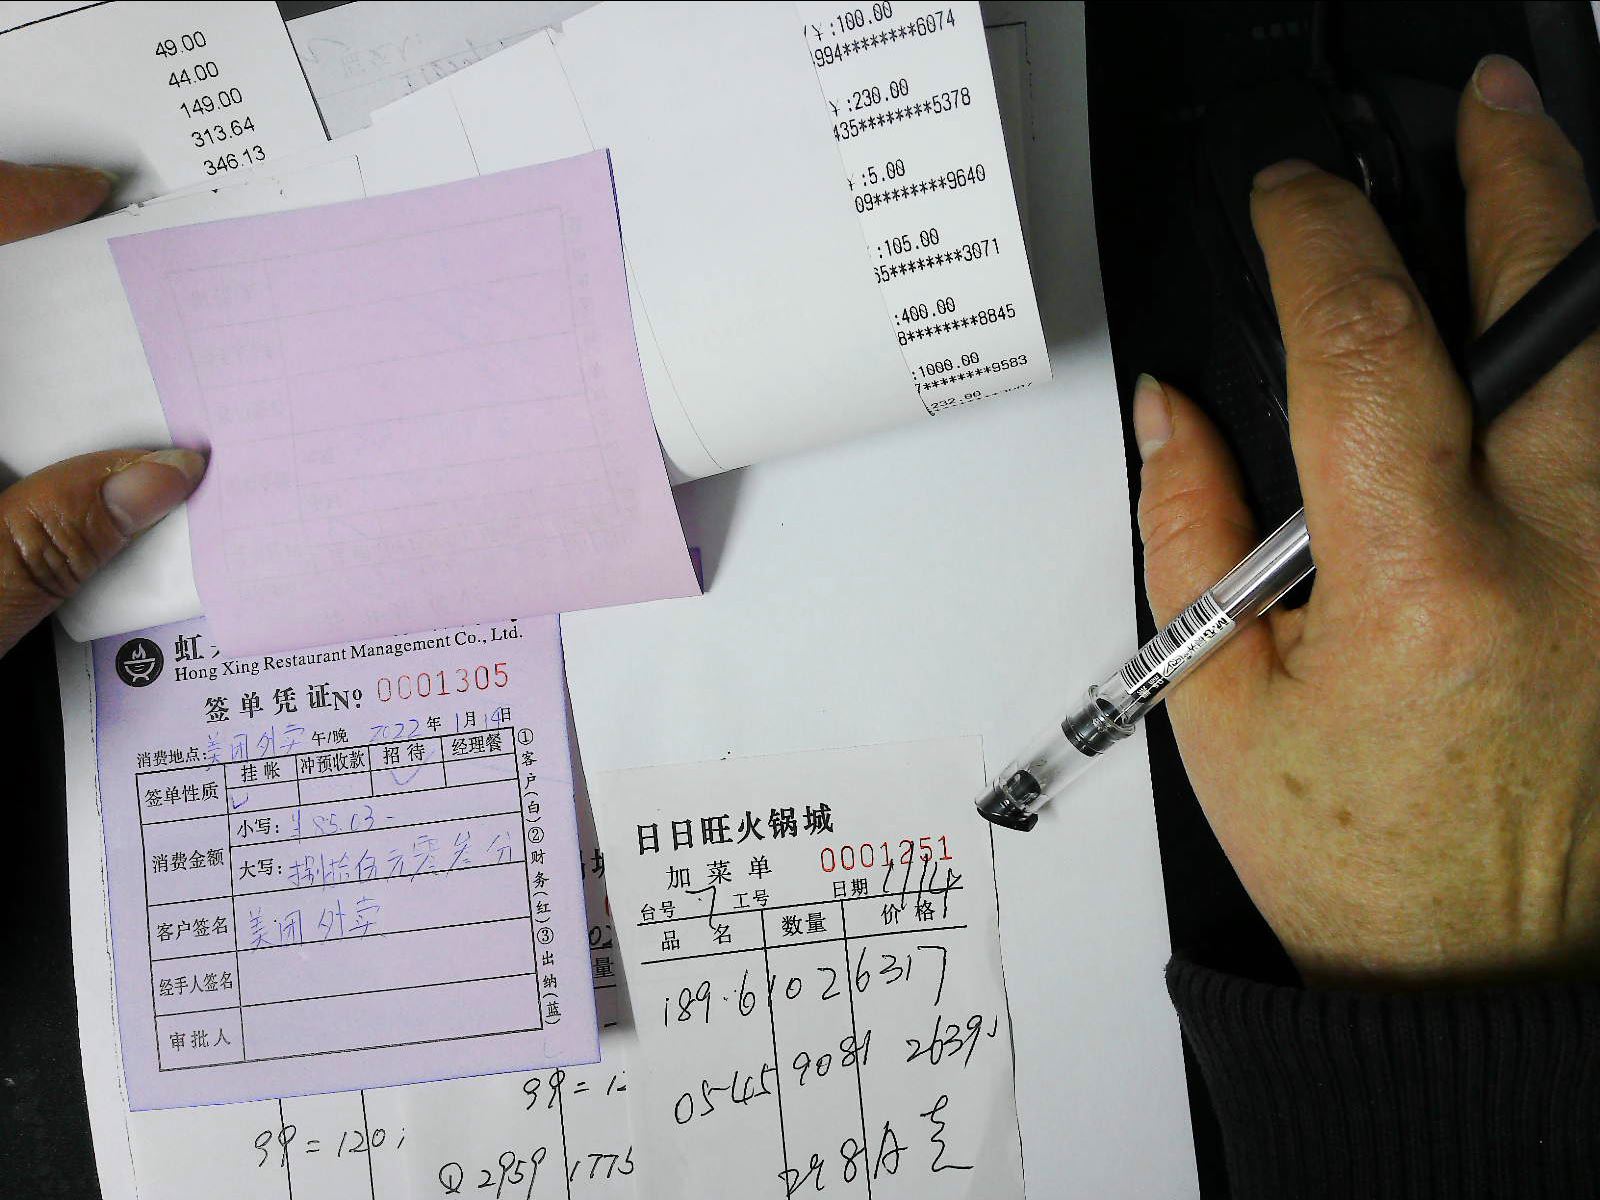 49.00
44.00
149.00
313.64
346.13
:100.00
994********6074
:230.00
435********5378
:5.00
09********9640
:105.00
65********3071
:400.00
8********8845
:1000.00
7********9583
虹
Hong Xing Restaurant Management Co., Ltd.
签单凭证No 0001305
消费地点:美团外卖 午/晚 2022年1月14日
签单性质 挂帐 冲预收款 招待 经理餐
消费金额 小写:¥85.03-
大写:捌拾伍元零叁分
客户签名 美团外卖
经手人签名
审批人
①客户(白)②财务(红)③出纳(蓝)
日日旺火锅城
加菜单 0001251
台号 7 工号 日期 1/14
品名 数量 价格
189.6 102 6317
0545 9081 2639
298A
99=12
99=120
2959 1775